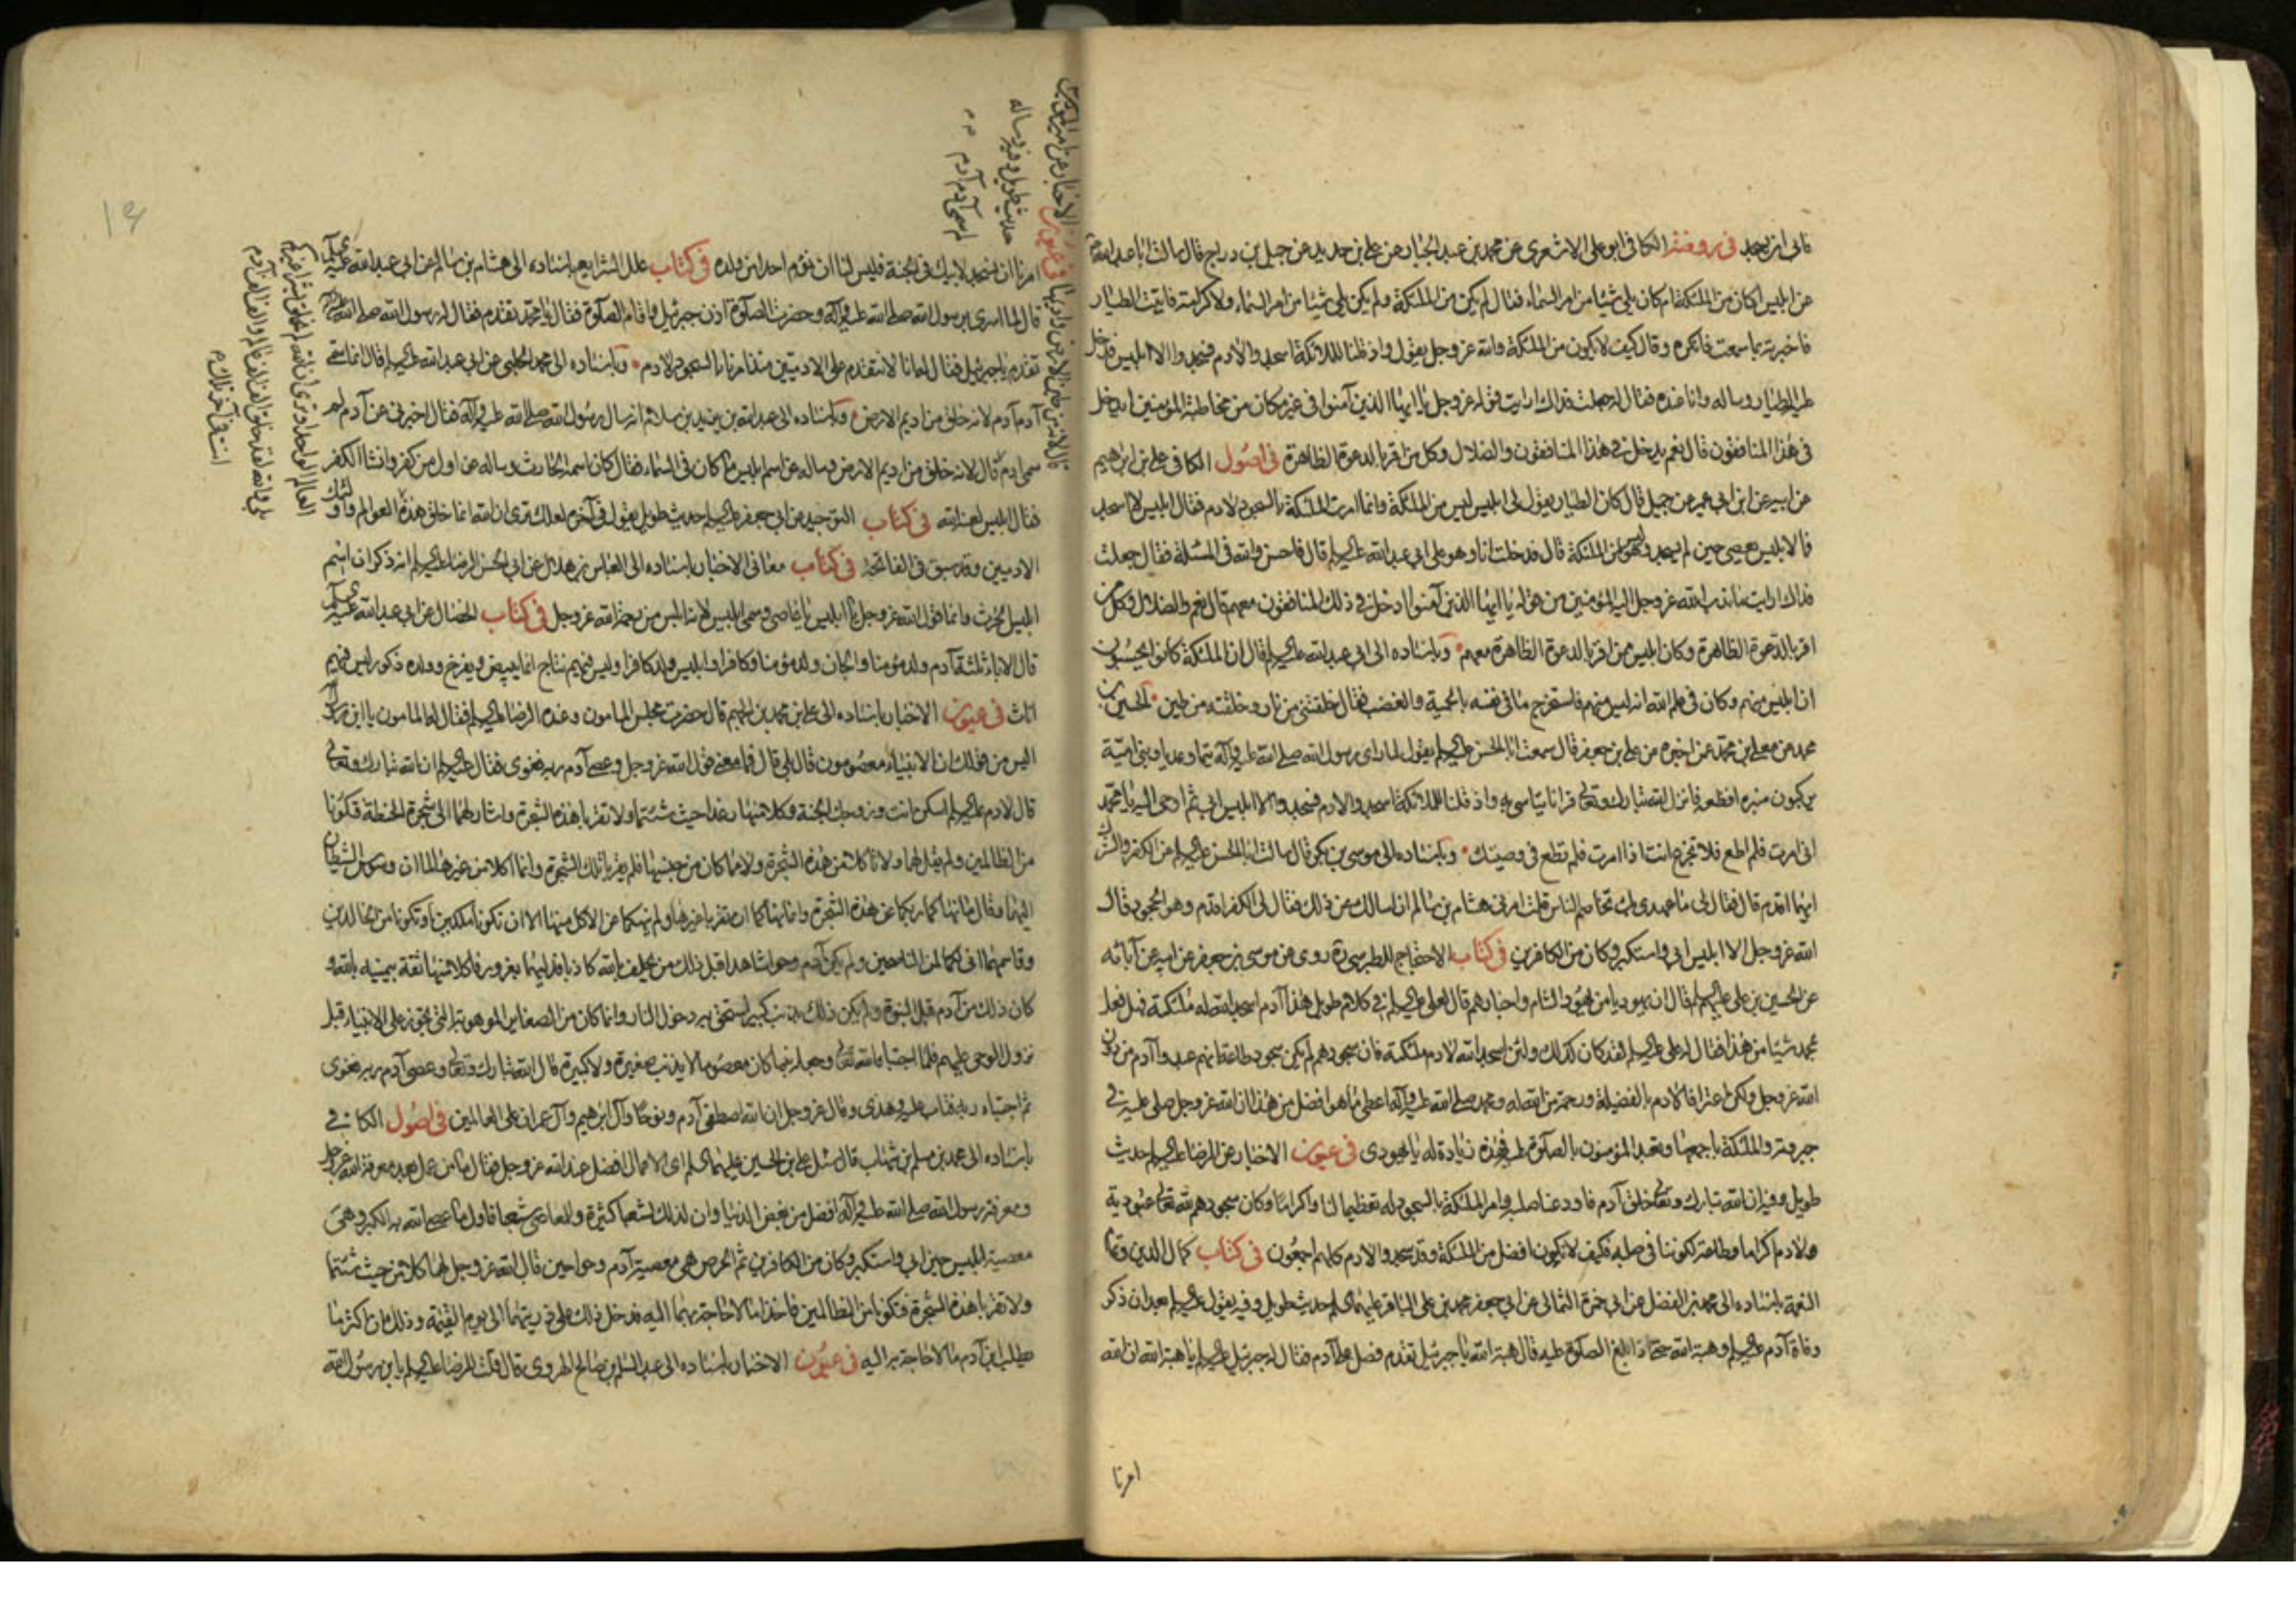 فابى ان يسجد في روضة الكافي ابو علي الاشعري عن محمد بن عبد الجبار عن علي بن حديد عن جميل بن دراج قال سالت ابا عبد الله
عن ابليس اكان من الملئكة ام كان يلي شيئا من امر السماء فقال لم يكن من الملئكة ولم يكن يلي شيئا من امر السماء ولا كرامة فاتيت الطيار
فاخبرته بما سمعت فانكره وقال كيف لا يكون من الملئكة والله عز وجل يقول واذ قلنا للملائكة اسجدوا لادم فسجدوا الا ابليس فدخل
عليه الطيار وساله وانا عنده فقال له جعلت فداك ارايت قوله عز وجل يا ايها الذين آمنوا في غير مكان من مخاطبة المؤمنين ايدخل
في هذا المنافقون قال نعم يدخل في هذا المنافقون والضلال وكل من اقر بالدعوة الظاهرة في اصول الكافي علي بن ابرهيم
عن ابيه عن ابن ابي عمير عن جميل قال كان الطيار يقول لي ابليس ليس من الملئكة وانما امرت الملئكة بالسجود لادم فقال ابليس لا اسجد
فما لابليس يعصي حين لم يسجد وليس هو من الملئكة قال فدخلت انا وهو على ابي عبد الله عليه السلم قال فاحسن والله في المسئلة فقال جعلت
فداك ارايت ما ندب الله عز وجل اليه المؤمنين من قوله يا ايها الذين آمنوا ادخل في ذلك المنافقون معهم قال نعم والضلال وكل من
اقر بالدعوة الظاهرة وكان ابليس ممن اقر بالدعوة الظاهرة معهم وباسناده الى ابي عبد الله عليه السلم قال ان الملئكة كانوا يحسبون
ان ابليس منهم وكان في علم الله انه ليس منهم فاستخرج ما في نفسه بالحمية والغضب فقال خلقتني من نار وخلقته من طين الحسين بن
محمد عن معلى بن محمد عمن اخبره عن علي بن جعفر قال سمعت ابا الحسن عليه السلم يقول لما راى رسول الله صلى الله عليه وآله تيما وعديا وبني امية
يركبون منبره افظعه فانزل الله تبارك وتعالى قرانا يتاسى به واذ قلنا للملائكة اسجدوا لادم فسجدوا الا ابليس ابى ثم اوحى اليه يا محمد
اني امرت فلم اطع فلا تجزع انت اذا امرت فلم تطع في وصيك وباسناده الى موسى بن بكر قال سالت ابا الحسن عليه السلم عن الكفر والشرك
ايهما اقدم قال فقال لي ما عهدي بك تخاصم الناس قلت امرني هشام بن سالم ان اسالك عن ذلك فقال لي الكفر اقدم وهو الجحود قال
الله عز وجل الا ابليس ابى واستكبر وكان من الكافرين في كتاب الاحتجاج للطبرسي ره روي عن موسى بن جعفر عن ابيه عن آبائه
عن الحسين بن علي عليهم السلم قال ان يهوديا من يهود الشام واحبارهم قال لعلي عليه السلم في كلام طويل هذا آدم اسجد الله له ملئكته فهل فعل
بمحمد شيئا من هذا فقال له علي عليه السلم لقد كان كذلك ولئن اسجد الله لادم ملئكته فان سجودهم لم يكن سجود طاعة انهم عبدوا آدم من دون
الله عز وجل ولكن اعترافا لادم بالفضيلة ورحمة من الله له ومحمد صلى الله عليه وآله اعطي ما هو افضل من هذا ان الله عز وجل صلى عليه في
جبروته والملئكة باجمعها وتعبد المؤمنون بالصلوة عليه فهذه زيادة له يا يهودي في عيون الاخبار عن الرضا عليه السلم حديث
طويل وفيه ان الله تبارك وتعالى خلق آدم فاودعنا صلبه وامر الملئكة بالسجود له تعظيما لنا واكراما وكان سجودهم لله تعالى عبودية
ولادم اكراما وطاعة لكوننا في صلبه فكيف لا نكون افضل من الملئكة وقد سجدوا لادم كلهم اجمعون في كتاب كمال الدين وتمام
النعمة باسناده الى محمد بن الفضل عن ابي حمزة الثمالي عن ابي جعفر محمد بن علي الباقر عليهما السلم حديث طويل وفيه يقول عليه السلم بعد ان ذكر
وفاة آدم عليه السلم وهبة الله حتى اذا بلغ الصلوة عليه قال هبة الله يا جبرئيل تقدم فصل على آدم فقال له جبرئيل عليه السلم يا هبة الله ان الله
امرنا
امرنا ان نسجد لابيك في الجنة فليس لنا ان نؤم احدا من ولده في كتاب علل الشرايع باسناده الى هشام بن سالم عن ابي عبد الله عليه السلم
قال لما اسري برسول الله صلى الله عليه وآله وحضرت الصلوة اذن جبرئيل واقام الصلوة فقال يا محمد تقدم فقال له رسول الله صلى الله عليه وآله
تقدم يا جبرئيل فقال له انا لا نتقدم على الادميين منذ امرنا بالسجود لادم وباسناده الى محمد الحلبي عن ابي عبد الله عليه السلم قال انما سمي
آدم آدم لانه خلق من اديم الارض وباسناده الى عبد الله بن يزيد بن سلام انه سال رسول الله صلى الله عليه وآله فقال اخبرني عن آدم لم
سمي ادم قال لانه خلق من اديم الارض وساله عن اسم ابليس ما كان في السماء فقال كان اسمه الحارث وساله عن اول من كفر وانشا الكفر
فقال ابليس لعنه الله في كتاب التوحيد عن ابي جعفر عليه السلم حديث طويل يقول في آخره لعلك ترى ان الله انما خلق هذه العوالم واولئك
الادميين وقد سبق في الفاتحة في كتاب معاني الاخبار باسناده الى العباس بن هلال عن ابي الحسن الرضا عليه السلم انه ذكر ان اسم
ابليس الحرث وانما قول الله عز وجل يا ابليس يا عاصي وسمي ابليس لانه ابلس من رحمة الله عز وجل في كتاب الخصال عن ابي عبد الله عليه السلم
قال الاباء ثلثة آدم ولد مؤمنا والجان ولد مؤمنا وكافرا وابليس ولد كافرا وليس فيهم نتاج انما يبيض ويفرخ وولده ذكور ليس فيهم
اناث في عيون الاخبار باسناده الى علي بن محمد بن الجهم قال حضرت مجلس المامون وعنده الرضا عليه السلم فقال له المامون يا ابن رسول الله
اليس من قولك ان الانبياء معصومون قال بلى قال فما معنى قول الله عز وجل وعصى آدم ربه فغوى فقال عليه السلم ان الله تبارك وتعالى
قال لادم عليه السلم اسكن انت وزوجك الجنة وكلا منها رغدا حيث شئتما ولا تقربا هذه الشجرة واشار لهما الى شجرة الحنطة فتكونا
من الظالمين ولم يقل لهما ولا تاكلا من هذه الشجرة ولا مما كان من جنسها فلم يقربا تلك الشجرة وانما اكلا من غيرها لما ان وسوس الشيطان
اليهما وقال ما نهاكما ربكما عن هذه الشجرة وانما نهاكما ان تقربا غيرها ولم ينهكما عن الاكل منها الا ان تكونا ملكين او تكونا من الخالدين
وقاسمهما اني لكما لمن الناصحين ولم يكن آدم وحوا شاهدا قبل ذلك من يحلف بالله كاذبا فدليهما بغرور فاكلا منها ثقة بيمينه بالله و
كان ذلك من آدم قبل النبوة ولم يكن ذلك بذنب كبير استحق به دخول النار وانما كان من الصغاير الموهوبة التي تجوز على الانبياء قبل
نزول الوحي عليهم فلما اجتباه الله تعالى وجعله نبيا كان معصوما لا يذنب صغيرة ولا كبيرة قال الله تبارك وتعالى وعصى آدم ربه فغوى
ثم اجتباه ربه فتاب عليه وهدى وقال عز وجل ان الله اصطفى آدم ونوحا وآل ابرهيم وآل عمران على العالمين في اصول الكافي
باسناده الى محمد بن مسلم بن شهاب قال سئل علي بن الحسين عليهما السلم اي الاعمال افضل عند الله عز وجل فقال ما من عمل بعد معرفة الله عز وجل
ومعرفة رسول الله صلى الله عليه وآله افضل من بغض الدنيا وان لذلك لشعبا كثيرة وللمعاصي شعبا فاول ما عصي الله به الكبر وهي
معصية ابليس حين ابى واستكبر وكان من الكافرين ثم الحرص وهي معصية آدم وحوا حين قال الله عز وجل لهما كلا من حيث شئتما
ولا تقربا هذه الشجرة فتكونا من الظالمين فاخذا ما لا حاجة بهما اليه فدخل ذلك على ذريتهما الى يوم القيمة وذلك ان اكثر ما
يطلب ابن آدم ما لا حاجة به اليه في عيون الاخبار باسناده الى عبد السلم بن صالح الهروي قال قلت للرضا عليه السلم يا ابن رسول الله
الاخبار عن امير المؤمنين
حديث طويل وفيه ساله
لم سمي آدم آدم
قال لانه خلق من اديم الارض
العالم الواحد وترى ان الله لم يخلق بشرا غيركم
بلى والله لقد خلق الف الف عالم والف الف آدم
انت في آخر تلك